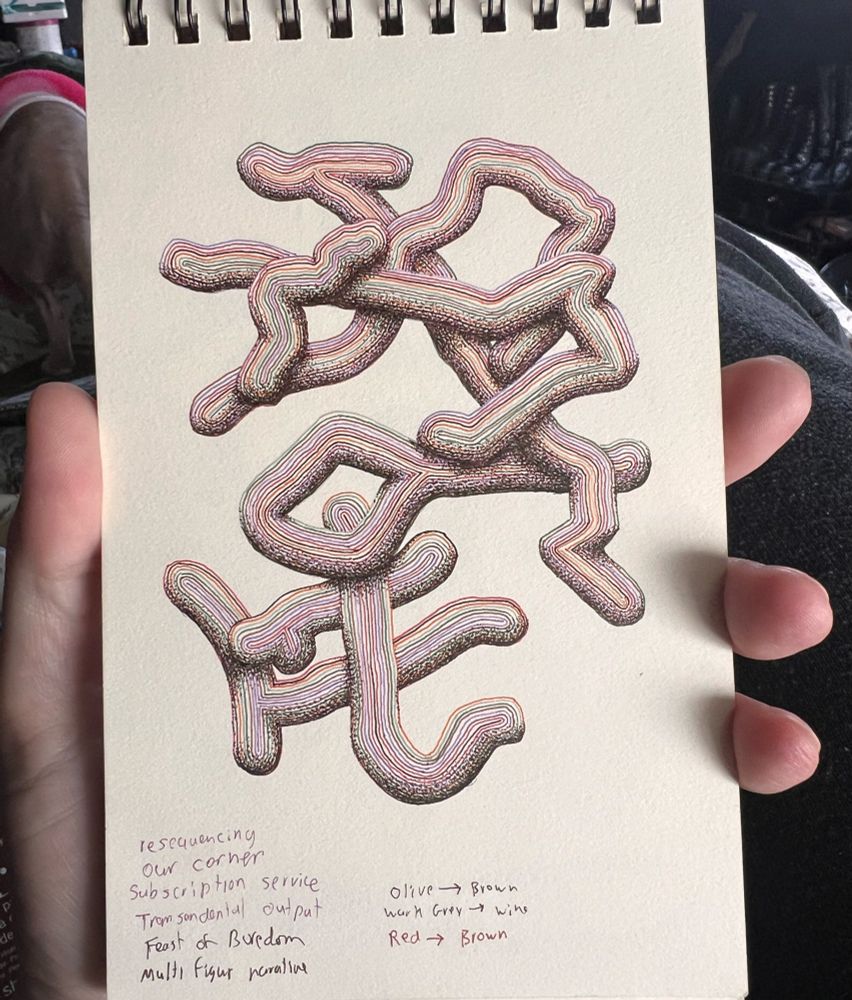 resequencing
our corner
Subscription service
Transendental output
Feast of Buredom
Multi Figur narative
Olive → Brown
Warh Grey → wine
Red → Brown